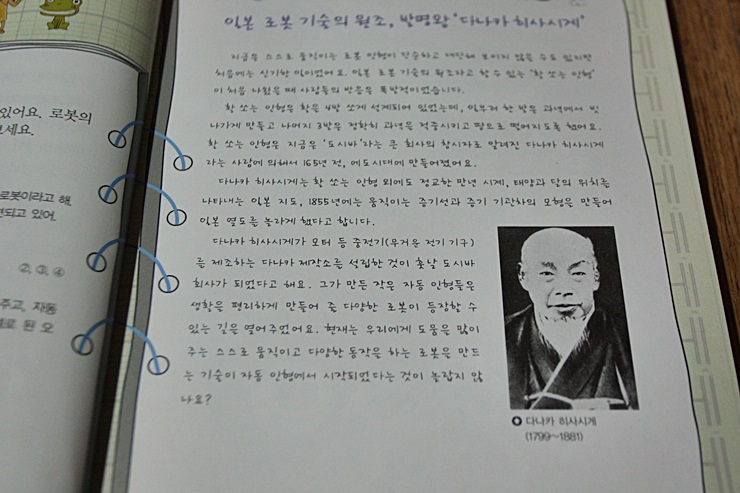 있어요. 로봇의
보세요.
로봇이라고 해.
되고 있어.
②, ③, ④
주고, 자동
일본 로봇 기술의 원조, 발명왕 '다나카 히사시게'
지금은 스스로 움직이는 로봇 인형이 단순하고 대단해 보이지 않을 수도 있지만
처음에는 신기한 일이었어요. 일본 로봇 기술의 원조라고 할 수 있는 '활 쏘는 인형'
이 처음 나왔을 때 사람들의 반응은 폭발적이었습니다.
활 쏘는 인형은 활을 4발 쏘게 설계되어 있었는데, 일부러 한 발은 과녁에서 빗
나가게 만들고 나머지 3발은 정확히 과녁을 적중시키고 땅으로 떨어지도록 했어요.
활 쏘는 인형은 지금은 '도시바'라는 큰 회사의 창시자로 알려진 다나카 히사시게
라는 사람에 의해서 165년 전, 에도시대에 만들어졌어요.
다나카 히사시게는 활 쏘는 인형 외에도 정교한 만년 시계, 태양과 달의 위치를
나타내는 일본 지도, 1855년에는 움직이는 증기선과 증기 기관차의 모형을 만들어
일본 열도를 놀라게 했다고 합니다.
다나카 히사시게가 모터 등 중전기(무거운 전기 기구)
를 제조하는 다나카 제작소를 설립한 것이 훗날 도시바
회사가 되었다고 해요. 그가 만든 작은 자동 인형들은
생활을 편리하게 만들어 줄 다양한 로봇이 등장할 수
있는 길을 열어주었어요. 현재는 우리에게 도움을 많이
주는 스스로 움직이고 다양한 동작을 하는 로봇을 만드
는 기술이 자동 인형에서 시작되었다는 것이 놀랍지 않
나요?
다나카 히사시게
(1799~1881)